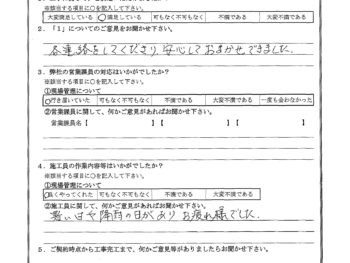 ※該当する項目に○を記入して下さい。
大変満足している ○満足している 可もなく不可もなく 不満である 大変不満である
2．「1」についてのご意見をお聞かせ下さい。
各連絡をしてくださり、安心しておまかせできました。
3．弊社の営業課員の対応はいかがでしたか？
※該当する項目に○を記入して下さい。
①現場管理について
○行き届いていた 可もなく不可もなく 不満である 大変不満である 一度も会わなかった
②営業課員に関して、何かご意見があればお聞かせ下さい。
営業課員名【 】【 】【 】
4．施工員の作業内容等はいかがでしたか？
※該当する項目に○を記入して下さい。
①現場管理について
○良くやってくれた 可もなく不可もなく 不満である 大変不満である
②施工員に関して、何かご意見があればお聞かせ下さい。
暑い日や降雨の日があり お疲れ様でした。
5．ご契約時点から工事完工まで、何かご意見等がありましたらお聞かせ下さい。